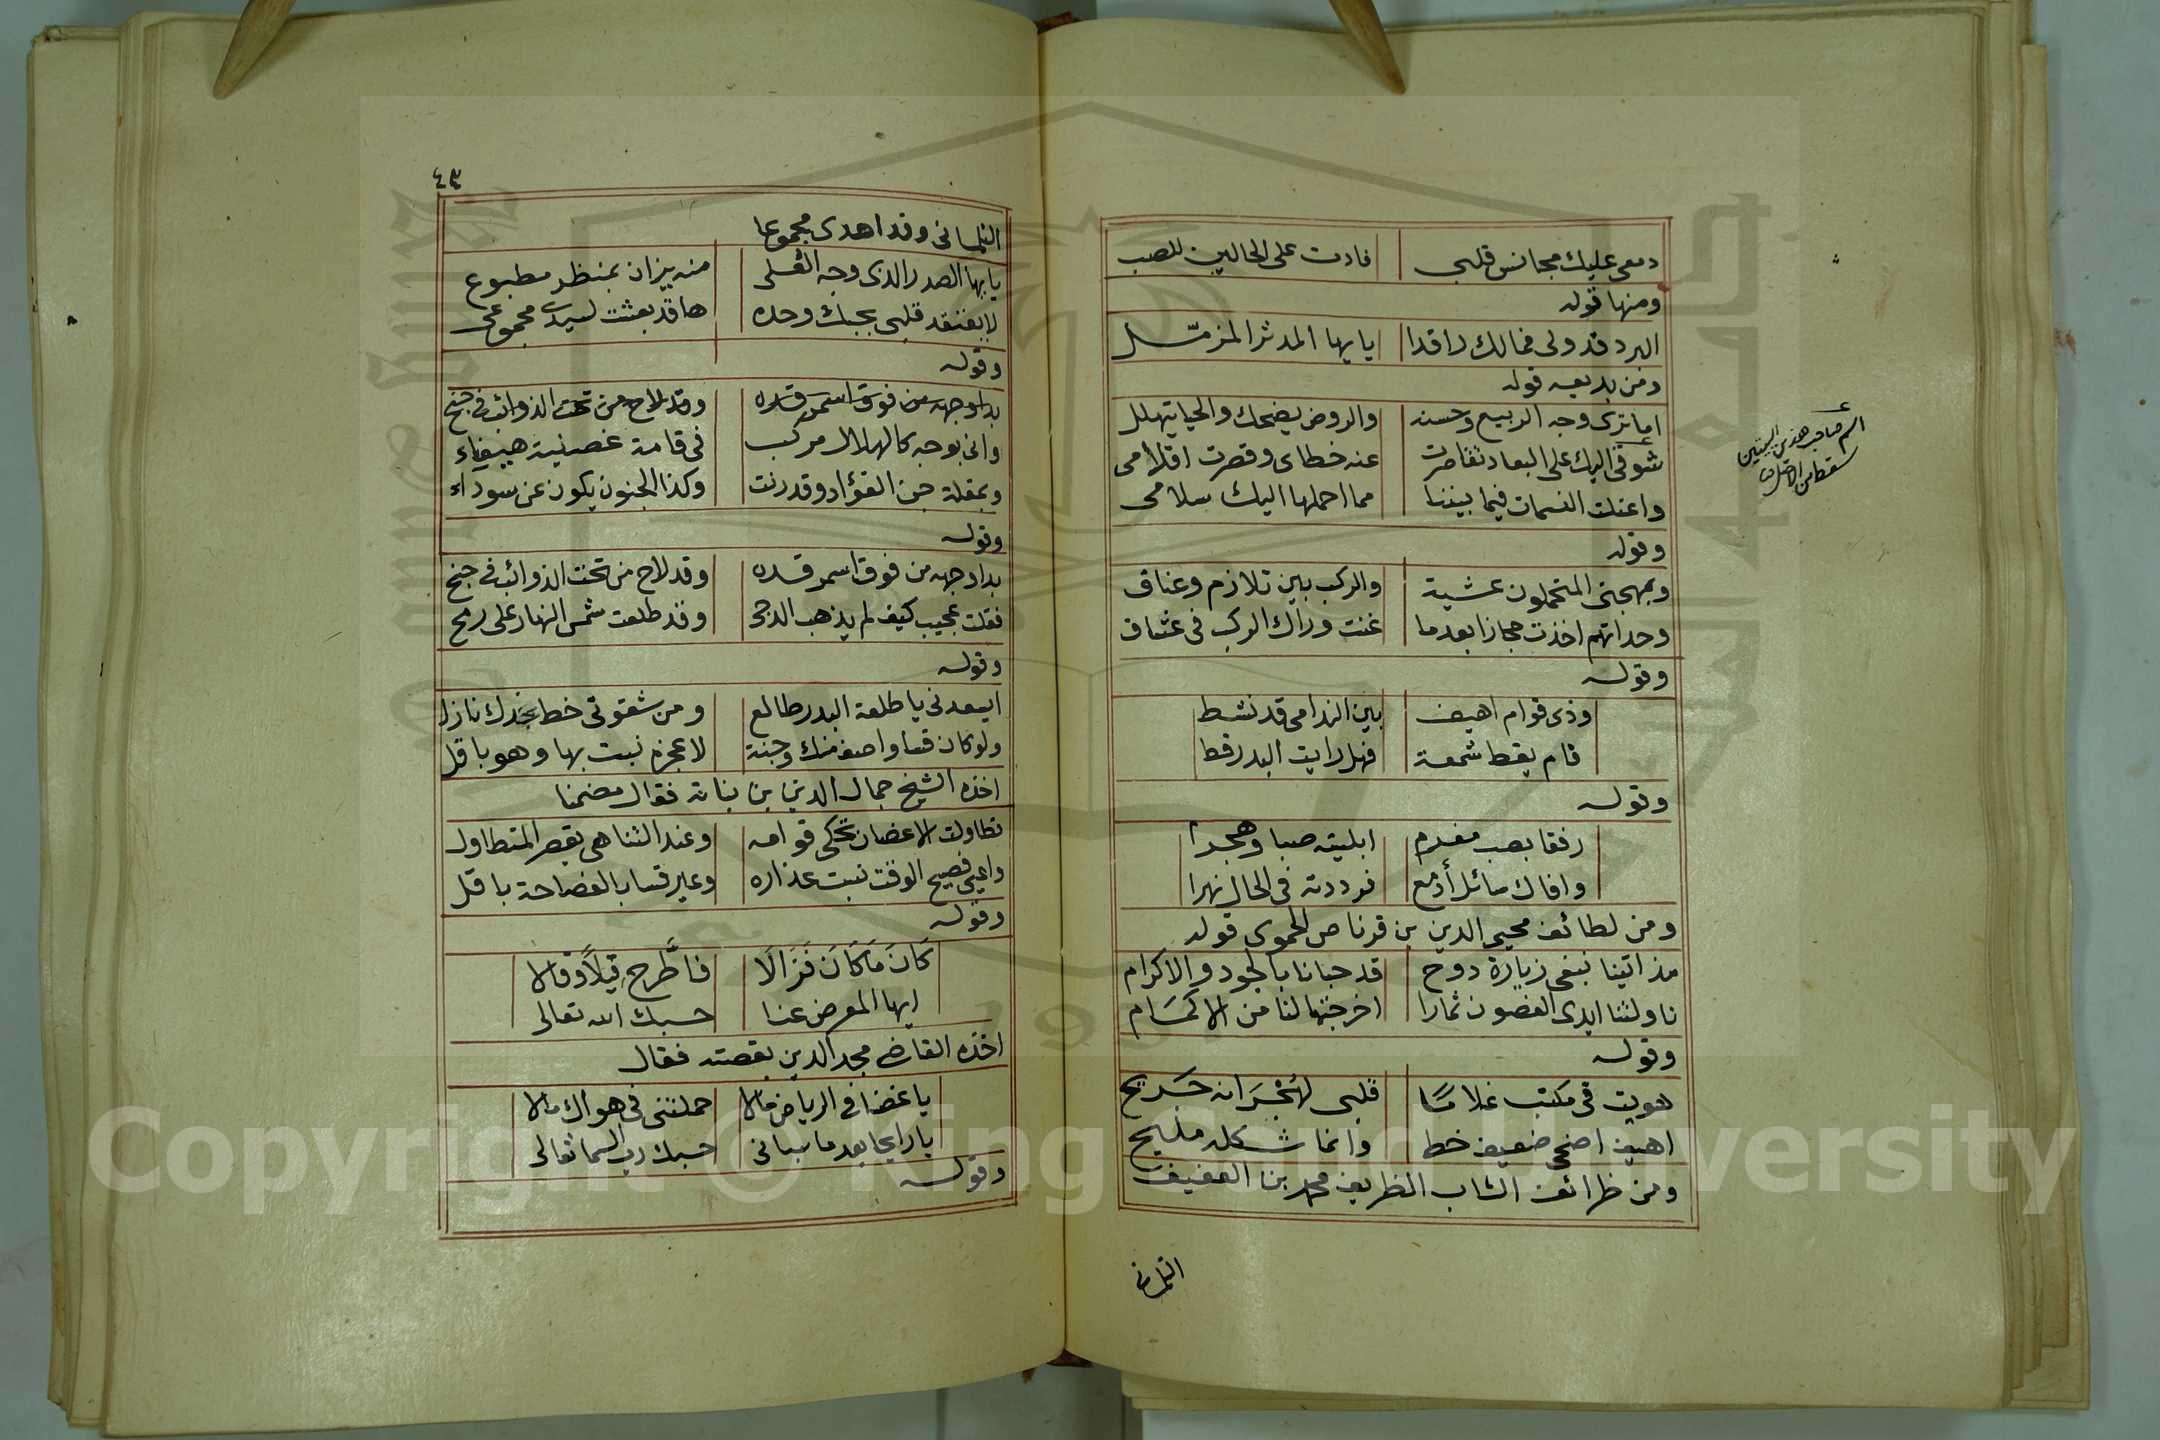 دمعى عليك مجانس قلبى فادت على الحالين للصب
ومنها قوله
البرد قد ولى فمالك راقدا يايها المدثر المزمل
ومن بديعه قوله
اما ترى وجه الربيع وحسنه والروض يضحك والحيا يتهلل
شوقى اليك على البعاد تقاصرت عنه خطاى وقصرت اقلامى
واعتلت النسمات فيما بيننا مما احملها اليك سلامى
وقوله
وبمهجتى المتحملون عشية والركب بين تلازم وعناق
وحداتهم اخذت مجازا بعدما غنت وراك الركب فى عشاق
وقوله
وذى قوام اهيف بين الندامى قد نشط
قام يقط شمعة فهل رايت البدر قط
وقوله
رفقا بصب مغرم ابليته صبا وهجرا
وافاك سائل أدمع فرددته فى الحال نهرا
ومن لطائف محيى الدين بن قرناص الحموى قوله
مذ اتينا نبغى زيارة دوح قد حبانا بالجود والاكرام
ناولتنا ايدى الغصون ثمارا اخرجتها لنا من الاكمام
وقوله
هويت فى مكتب غلامًا قلبى لهجرانه جريح
اهيف اضحى ضعيف خط وانما شكله مليح
ومن ظرائف الشاب الظريف محمد بن العفيف
التلمسانى
اسم صاحب هذين البيتين
سقط من الاصل
٤٣
التلمسانى وقد اهدى مجموعا
يايها الصدر الذى وجه العلى منه يزان بمنظر مطبوع
لا يفتقد قلبى بحبك وحده ها قد بعثت لسيدى مجموعى
وقوله
بدا وجهه من فوق اسمر قده وقد لاح من تحت الذوائب فى جنح
وانى بوجه كالهلال مركب فى قامة غصنية هيفاء
وبمقلة جن الفؤاد وقد رنت وكذا الجنون يكون عن سوداء
وقوله
بدا وجهه من فوق اسمر قده وقد لاح من تحت الذوائب فى جنح
فقلت عجيب كيف لم يذهب الدجى وقد طلعت شمس النهار على رمح
وقوله
ايسعدنى يا طلعة البدر طالع ومن شقوتى خط بخدك نازل
ولو كان قسا واصف منك وجنة لاعجزه نبت بها وهو باقل
اخذه الشيخ جمال الدين بن نباتة فقال مضمنا
تطاولت الاغصان تحكى قوامه وعند التناهى يقصر المتطاول
واعيى فصيح الوقت نبت عذاره وعير قسا بالفصاحة باقل
وقوله
كَانَ مَا كَانَ فَزَالَا فاطَّرح قيلاً وقالا
ايها المعرض عنا حسبك الله تعالى
اخذه القاضى مجد الدين بقصته فقال
يا غصنا فى الرياض مالا حملتنى فى هواك مالا
يا رايحا بعد ما سبانى حسبك رب السما تعالى
وقوله
Copyright © King Saud University